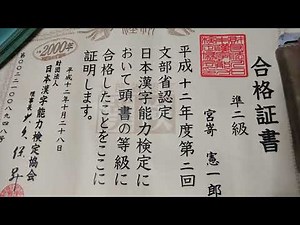 合格証書
準二級
宮嵜 憲一郎
平成十二年度第二回
文部省認定
日本漢字能力検定に
おいて頭書の等級に
合格したことをここに
証明します。
2000年
平成十二年十月二十八日
財団法人
日本漢字能力検定協会
理事長